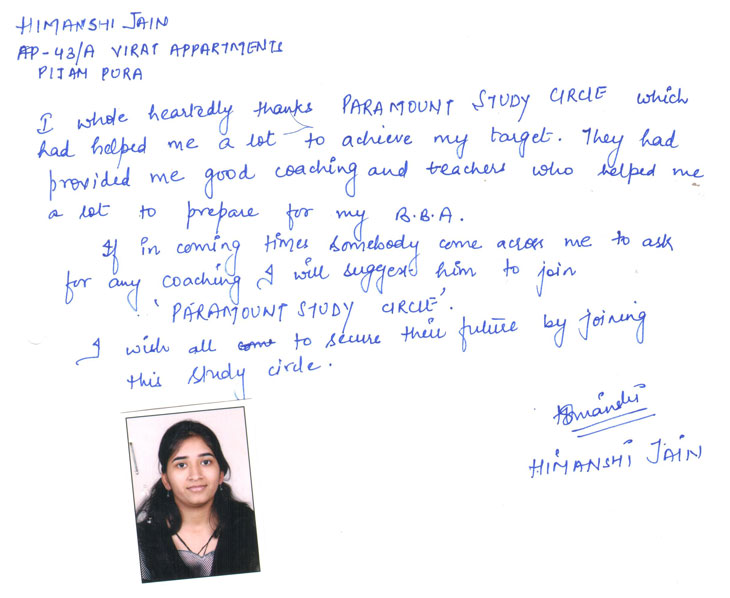 HIMANSHI JAIN
AP-43/A VIRAT APPARTMENTS
PITAM PURA
I whole heartedly thanks PARAMOUNT STUDY CIRCLE which
had helped me a lot to achieve my target. They had
provided me good coaching and teachers who helped me
a lot to prepare for my B.B.A.
If in coming times somebody come across me to ask
for any coaching I will suggest him to join
'PARAMOUNT STUDY CIRCLE'.
I wish all come to secure their future by joining
this study circle.
Himanshi
HIMANSHI JAIN